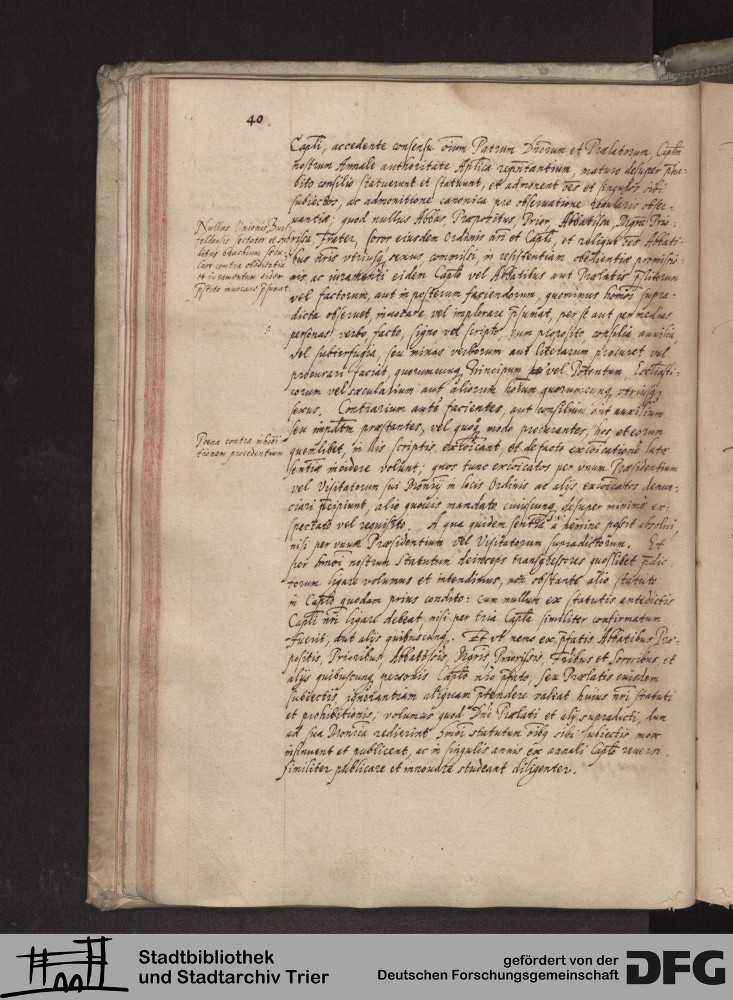 40.
Capli, accedente consensu oium Patrum Dnorum et Prælatorum, Caplm
nostrum Annale authoritate Aplica repntantium, maturo desuper pha-
bito consilio statuerunt et statuunt, et admonent oes et singulos sibi
subiectos, ac admonitione canonica pro observatione regularis obser-
uantiæ; quod nullus Abbas, Præpositus, Prior, Abbatissa, Mgra, Prio-
rissa, Frater, soror eiusdem Ordinis nri et Capli, et reliqui oes Abbati-
bus nris utriusq sexus commissi, in resistentiam obedientiæ promissio-
nis ac iuramenti eidem Caplo vel Abbatibus aut Prælatis pstitorum
vel factorum, aut in posterum faciendorum, quominus hmoi supra-
dicta observet, invocare vel implorare psumat, per se aut per medias
personas verbo, facto, signo vel scripto cum proposito, consilia, auxilia,
vel subterfugia, seu minas verborum aut literarum procuret vel
procurari faciat, quorumcunq Principum vel Potentum, Ecclasti-
corum vel sæcularium aut aliorum hoium quorumcunq, utriusq
sexus. Contrarium aute facientes, aut consilium aut auxilium
seu præstantes, vel quoq modo procurantes, hos et eorum
quemlibet, in his scriptis excoicant, et de facto excoicationis latæ
sententiæ incidere volunt; quos tunc excoicatos per unum Præsidentium
vel Visitatorum sui Monrij in locis Ordinis ac alis excoicatos denun-
ciari pcipiunt, alio quovis mandato cuiuscunq desuper minime ex-
spectato vel requisito. A qua quidem sentia a nemine possit absolvi
nisi per unum Præsidentium vel Visitatorum supradictorum. Et
per hmoi nostrum Statutum deinceps transgressores quoslibet pdic-
torum ligare volumus et intendimus, non obstante alio statuto
in Caplo quodam prius condito: cum nullum ex statutis antedictis
Capli nri ligare debeat, nisi per tria Capla similiter confirmatum
fuerit, aut alijs quibuscunq. Et ut nemo ex pfatis Abbatibus Præ-
positis, Prioribus, Abbatissis, Mgris, Priorissis, Fribus et Sororibus, et
alijs quibuscunq personis Caplo nro pfato, seu Prælatis eiusdem
subiectis, ignorantiam aliquam ptendere valeat huius nri statuti
et prohibitionis; volumus quod Dni Prælati et alij supradicti, dum
ad sua Monria redierint hmoi statutum oibq sibi subiectis mox
insinuent et publicent, ac in singulis annis ex annali Caplo reversi
similiter publicare et innovare studeant diligenter.
Nullus Unionis Burs-
feldensis sectator et sub-
ditus brachium sæcu-
lare contra obedientia
et iuramentum eidem
pstito invocare psumat.
Poena contra inhibi-
tionem procedentium
Stadtbibliothek
und Stadtarchiv Trier
gefördert von der
Deutschen Forschungsgemeinschaft
DFG